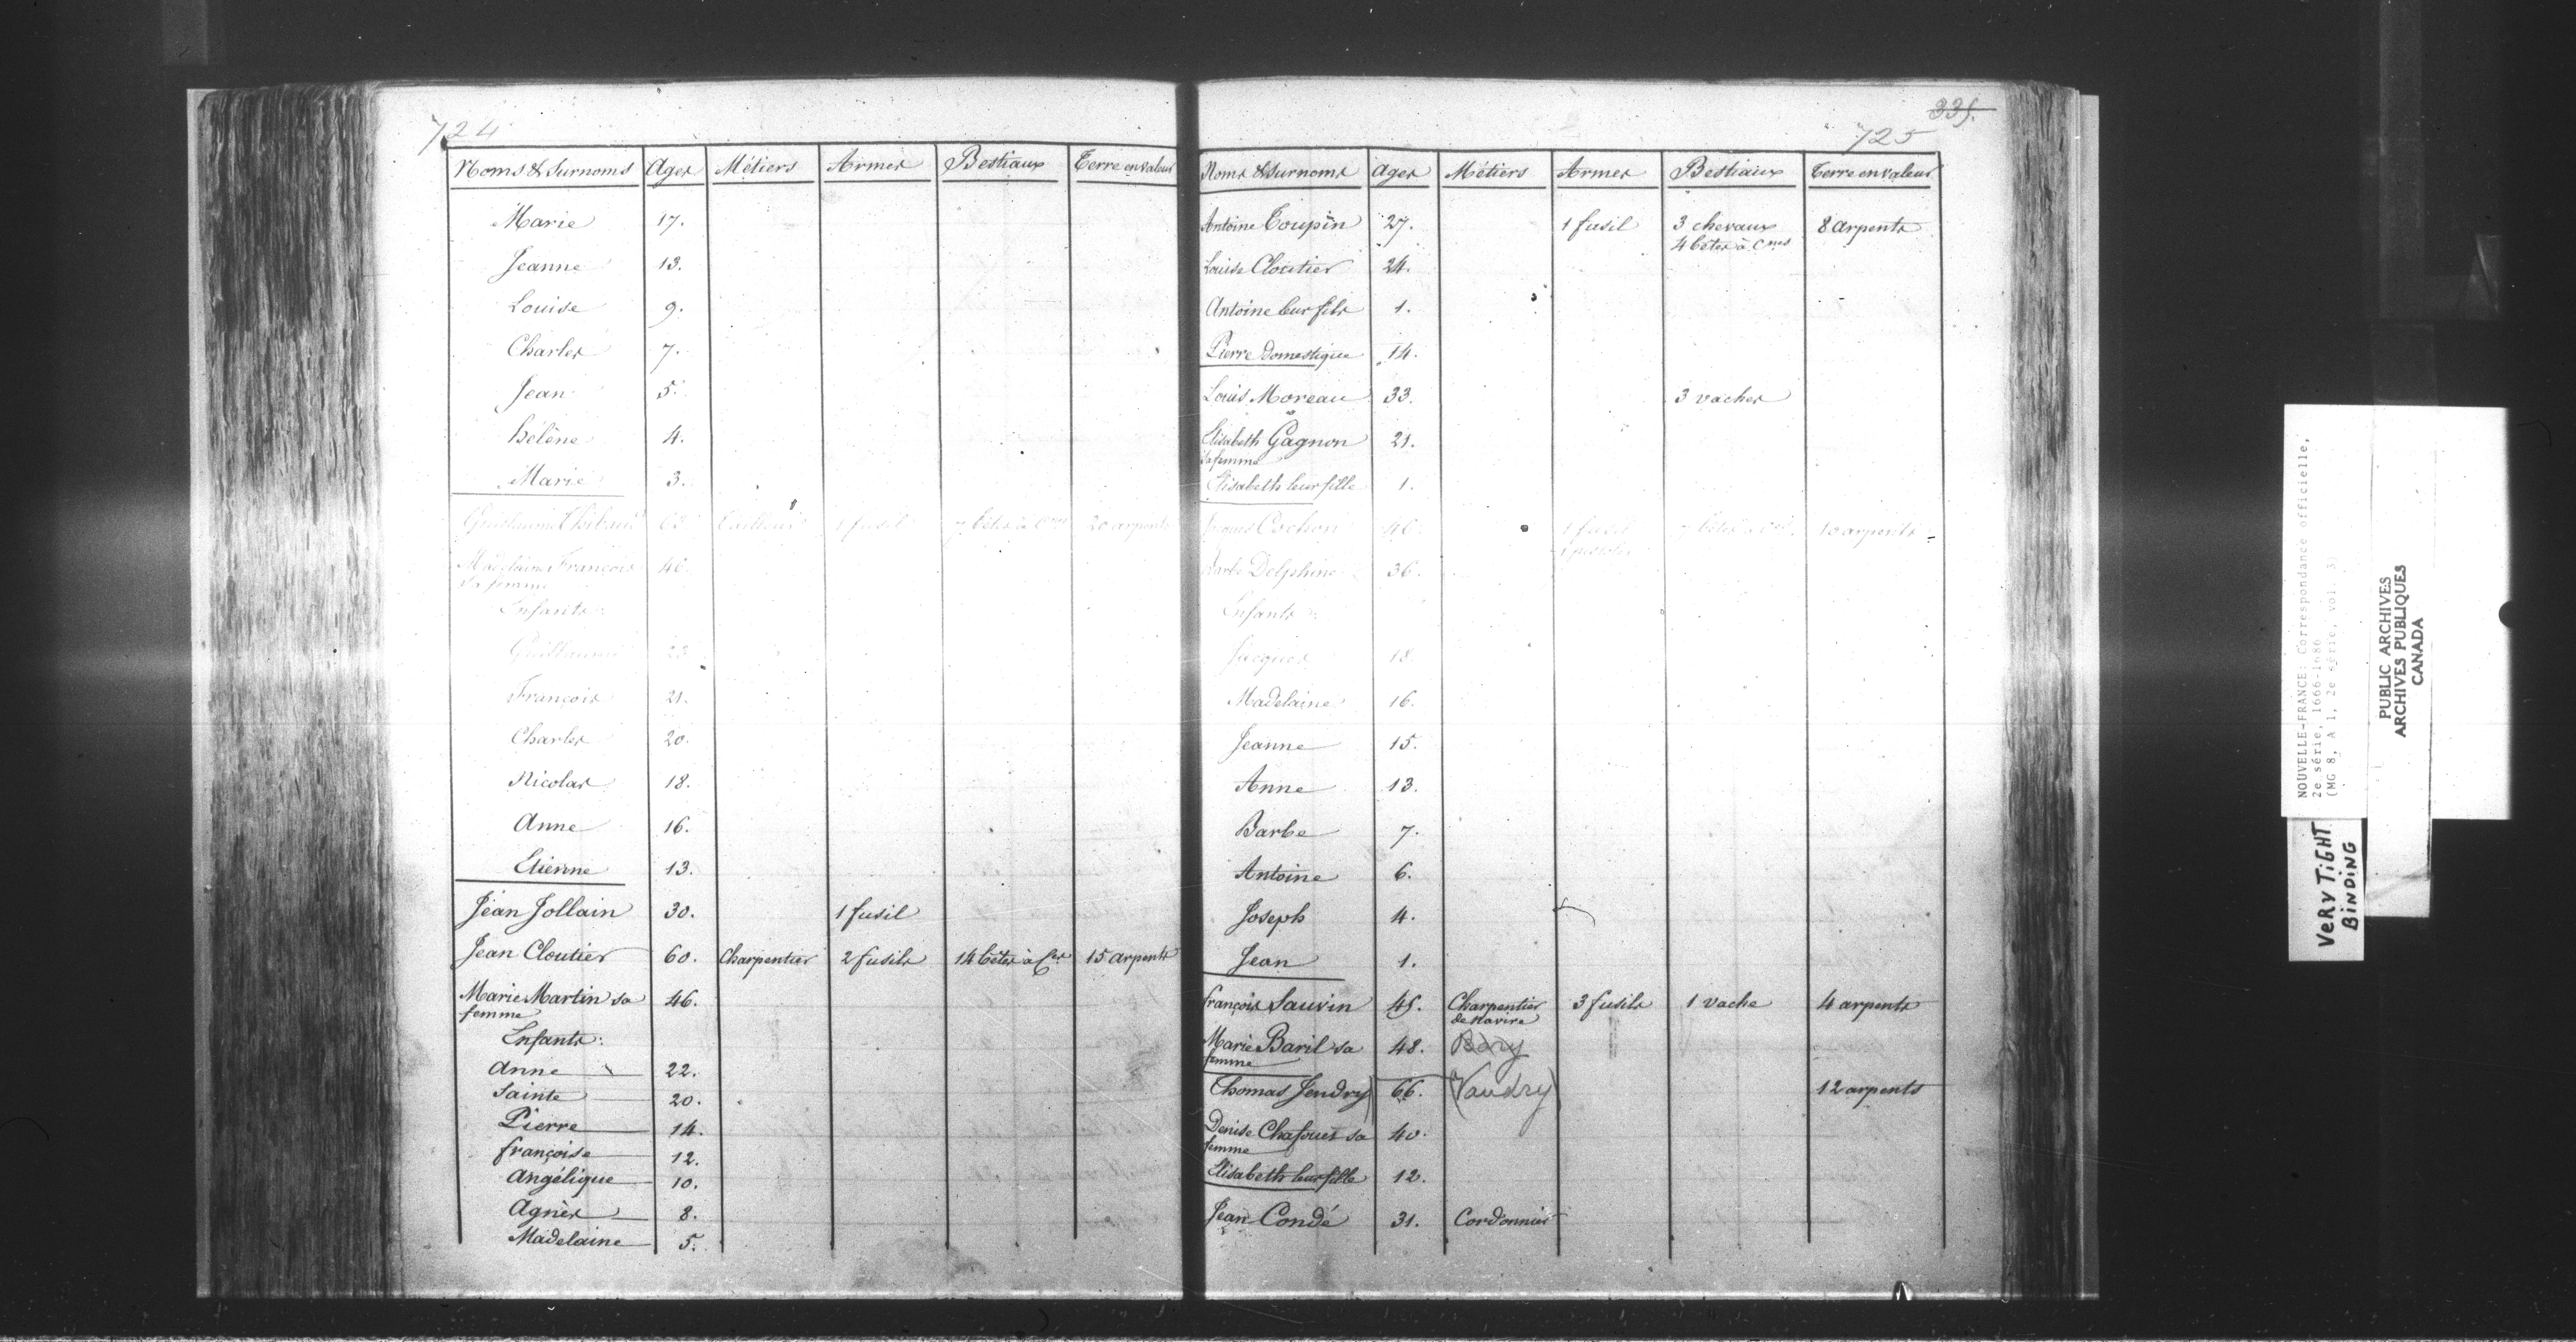 724
Noms & Surnoms Ages Métiers Armes Bestiaux Terre en valeur
Marie 17.
Jeanne 13.
Louise 9.
Charles 7.
Jean 5.
Hélène 4.
Marie 3.
Guillaume Thibaut 63. tailleur 1 fusil 7 bêtes à Cnes 20 arpents
Madelaine François 46.
sa femme
Enfants:
Guillaume 23.
François 21.
Charles 20.
Nicolas 18.
Anne 16.
Etienne 13.
Jean Jollain 30. 1 fusil
Jean Cloutier 60. Charpentier 2 fusils 14 bêtes à 15 arpents
Marie Martin sa 46.
femme
Enfants:
Anne 22.
Sainte 20.
Pierre 14.
françoise 12.
Angélique 10.
Agnès 8.
Madelaine 5.
335.
725
Noms & Surnoms Ages Métiers Armes Bestiaux Terre en valeur
Antoine Toupin 27. 1 fusil 3 chevaux 8 arpents
4 bêtes à Cnes
Louise Cloutier 24.
Antoine leur fils 1.
Pierre domestique 14.
Louis Moreau 33. 3 vaches
Elisabeth Gagnon 21.
sa femme
Elisabeth leur fille 1.
Cochon 46. 1 fusil 7 bêtes à 10 arpents
1 pistolet
Barbe Delphine 36.
Enfants:
Jacques 18.
Madelaine 16.
Jeanne 15.
Anne 13.
Barbe 7.
Antoine 6.
Joseph 4.
Jean 1.
françois Sauvin 45. Charpentier 3 fusils 1 vache 4 arpents
de navire
Marie Baril sa 48.
femme
Thomas Jendry) 66. (Vaudry) 12 arpents
Denise Chafouer sa 40.
femme
Elisabeth leur fille 12.
Jean Condé 31. Cordonnier
NOUVELLE-FRANCE: Correspondance officielle,
2e série, 1666-1686
(MG 8, A 1, 2e série, vol. 3)
PUBLIC ARCHIVES
ARCHIVES PUBLIQUES
CANADA
VERY TiGHT
BiNDiNG